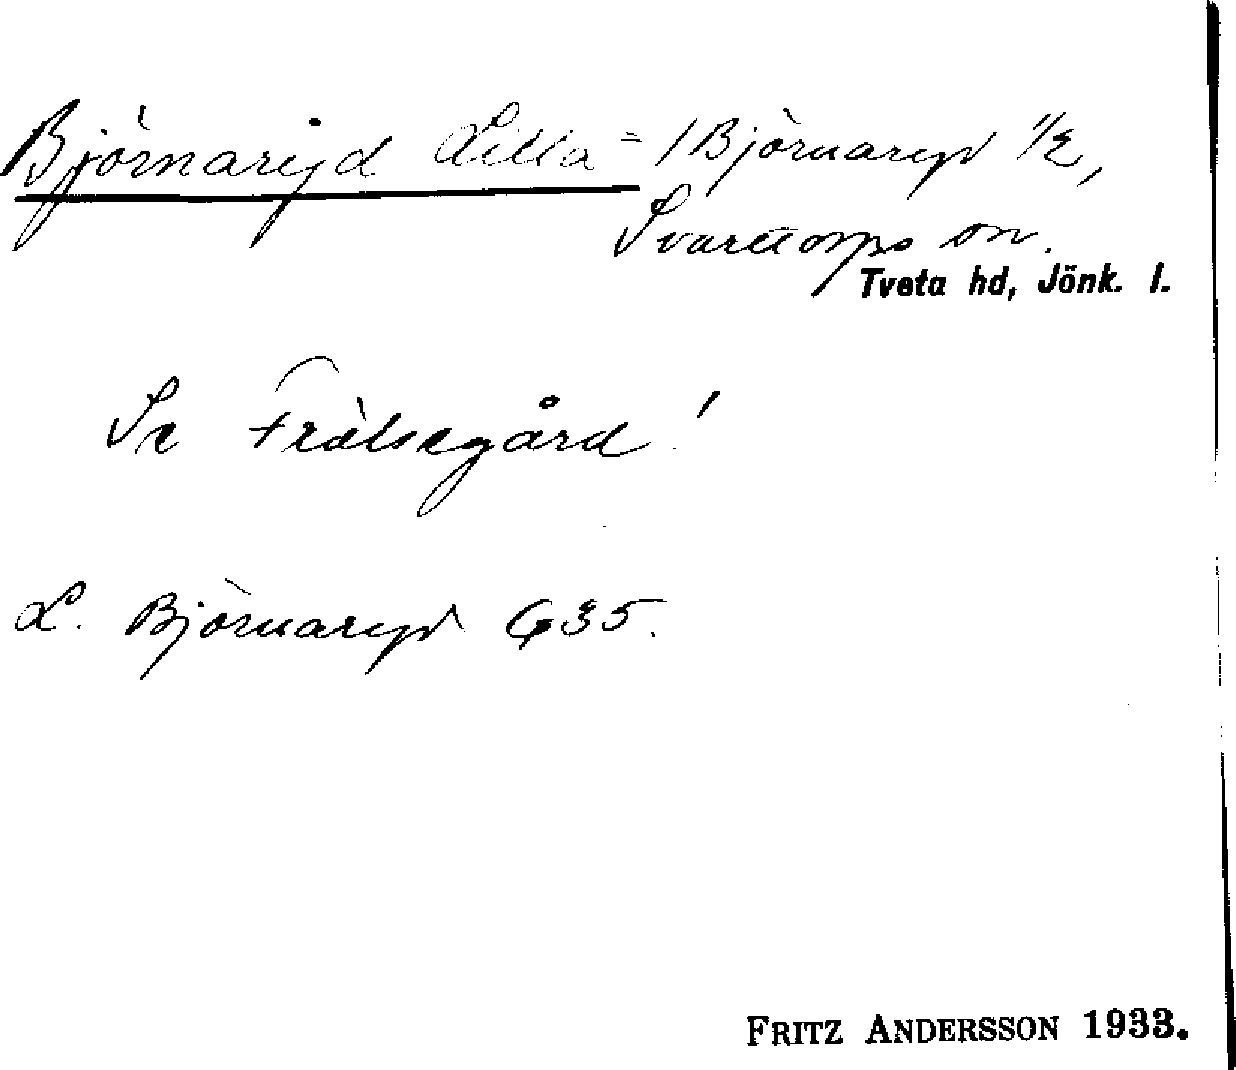 Björnaryd Lilla = /Björnaryd 1/2,
Svarttorps sn.
Tveta hd, Jönk. l.
Se Frälsegård!
L. Björnaryd G35.
FRITZ ANDERSSON 1933.